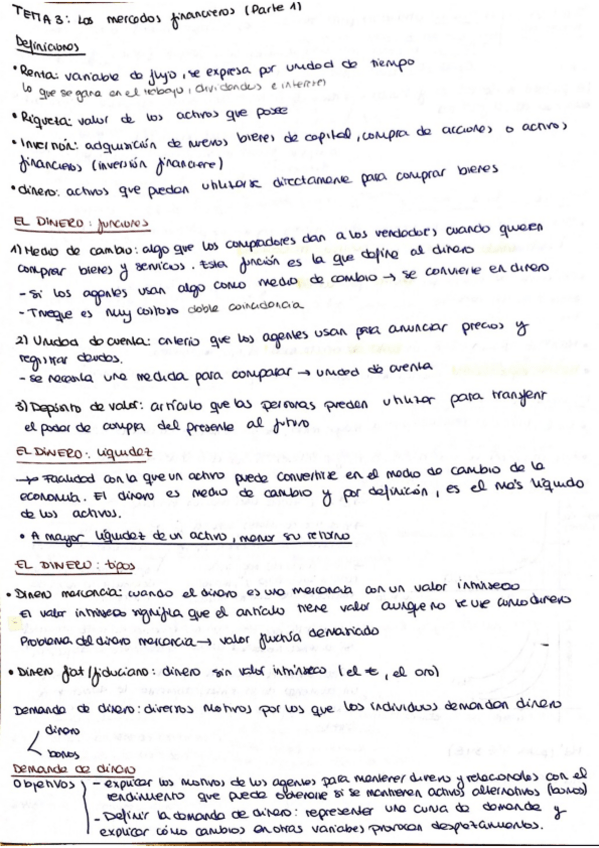 TEMA 3: Los mercados financieros (Parte 1)
Definiciones
• Renta: variable de flujo, se expresa por unidad de tiempo
lo que se gana en el trabajo, dividendos e interés
• Riqueza: valor de los activos que posee
• Inversión: adquisición de nuevos bienes de capital, compra de acciones o activos
financieros (inversión financiera)
• dinero: activos que puedan utilizarse directamente para comprar bienes
EL DINERO: funciones
1) Medio de cambio: algo que los compradores dan a los vendedores cuando quieren
comprar bienes y servicios. Esta función es la que define al dinero
- Si los agentes usan algo como medio de cambio → se convierte en dinero
- Trueque es muy costoso doble coincidencia
2) Unidad de cuenta: criterio que los agentes usan para anunciar precios y
registrar deudas.
- se necesita una medida para comparar → unidad de cuenta
3) Depósito de valor: artículo que las personas pueden utilizar para transferir
el poder de compra del presente al futuro
EL DINERO: liquidez
→ Facilidad con la que un activo puede convertirse en el medio de cambio de la
economía. El dinero es medio de cambio y por definición, es el más líquido
de los activos.
• A mayor liquidez de un activo, menor su retorno
EL DINERO: tipos
• Dinero mercancía: cuando el dinero es una mercancía con un valor intrínseco
El valor intrínseco significa que el artículo tiene valor aunque no se use como dinero
Problema del dinero mercancía → valor fluctúa demasiado
• Dinero fiat/fiduciario: dinero sin valor intrínseco (el €, el oro)
Demanda de dinero: diversos motivos por los que los individuos demandan dinero
dinero
bonos
Demanda de dinero
Objetivos - explicar los motivos de los agentes para mantener dinero y relacionarlos con el
rendimiento que puede obtenerse si se mantienen activos alternativos (bonos)
- Definir la demanda de dinero: representar una curva de demanda y
explicar cómo cambios en otras variables provocan desplazamientos.